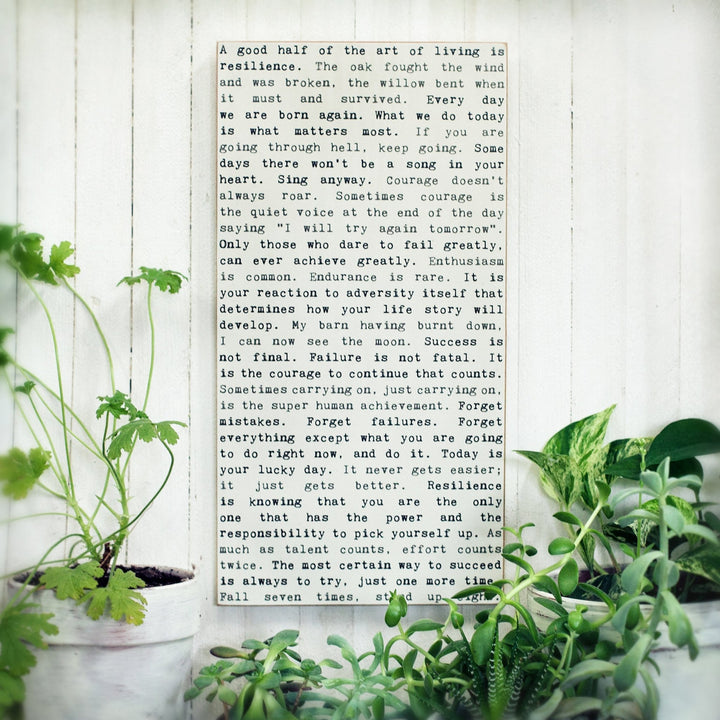 A good half of the art of living is
resilience. The oak fought the wind
and was broken, the willow bent when
it must and survived. Every day
we are born again. What we do today
is what matters most. If you are
going through hell, keep going. Some
days there won't be a song in your
heart. Sing anyway. Courage doesn't
always roar. Sometimes courage is
the quiet voice at the end of the day
saying "I will try again tomorrow".
Only those who dare to fail greatly,
can ever achieve greatly. Enthusiasm
is common. Endurance is rare. It is
your reaction to adversity itself that
determines how your life story will
develop. My barn having burnt down,
I can now see the moon. Success is
not final. Failure is not fatal. It
is the courage to continue that counts.
Sometimes carrying on, just carrying on,
is the super human achievement. Forget
mistakes. Forget failures. Forget
everything except what you are going
to do right now, and do it. Today is
your lucky day. It never gets easier;
it just gets better. Resilience
is knowing that you are the only
one that has the power and the
responsibility to pick yourself up. As
much as talent counts, effort counts
twice. The most certain way to succeed
is always to try, just one more time.
Fall seven times, stand up eight.